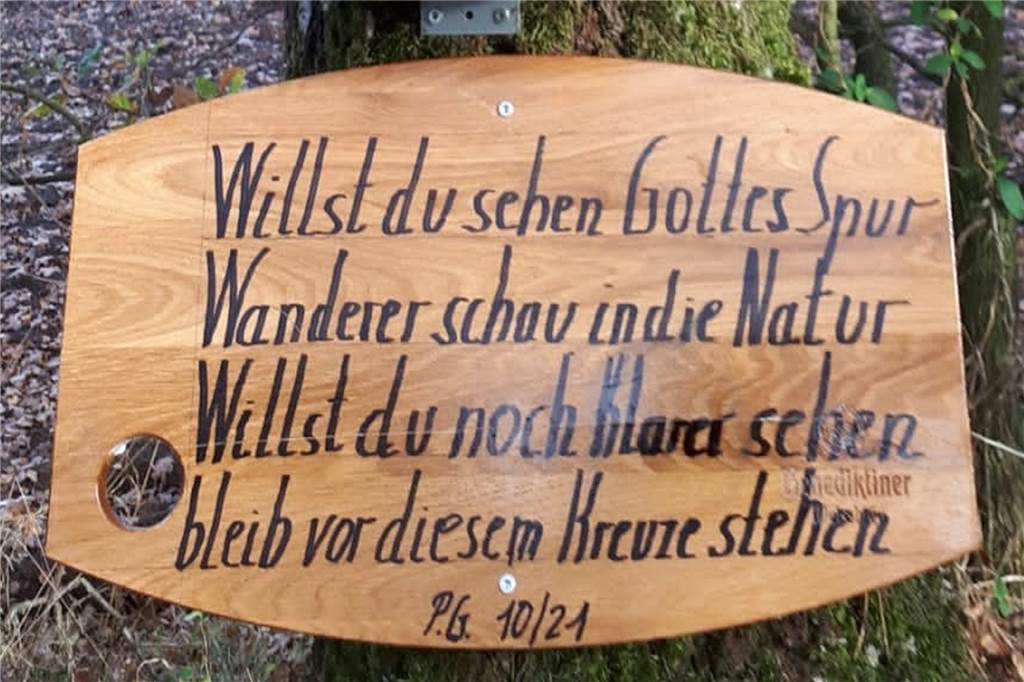 Willst du sehen Gottes Spur
Wanderer schau in die Natur
Willst du noch klarer sehen
Benediktiner
bleib vor diesem Kreuze stehen
P.G. 10/21